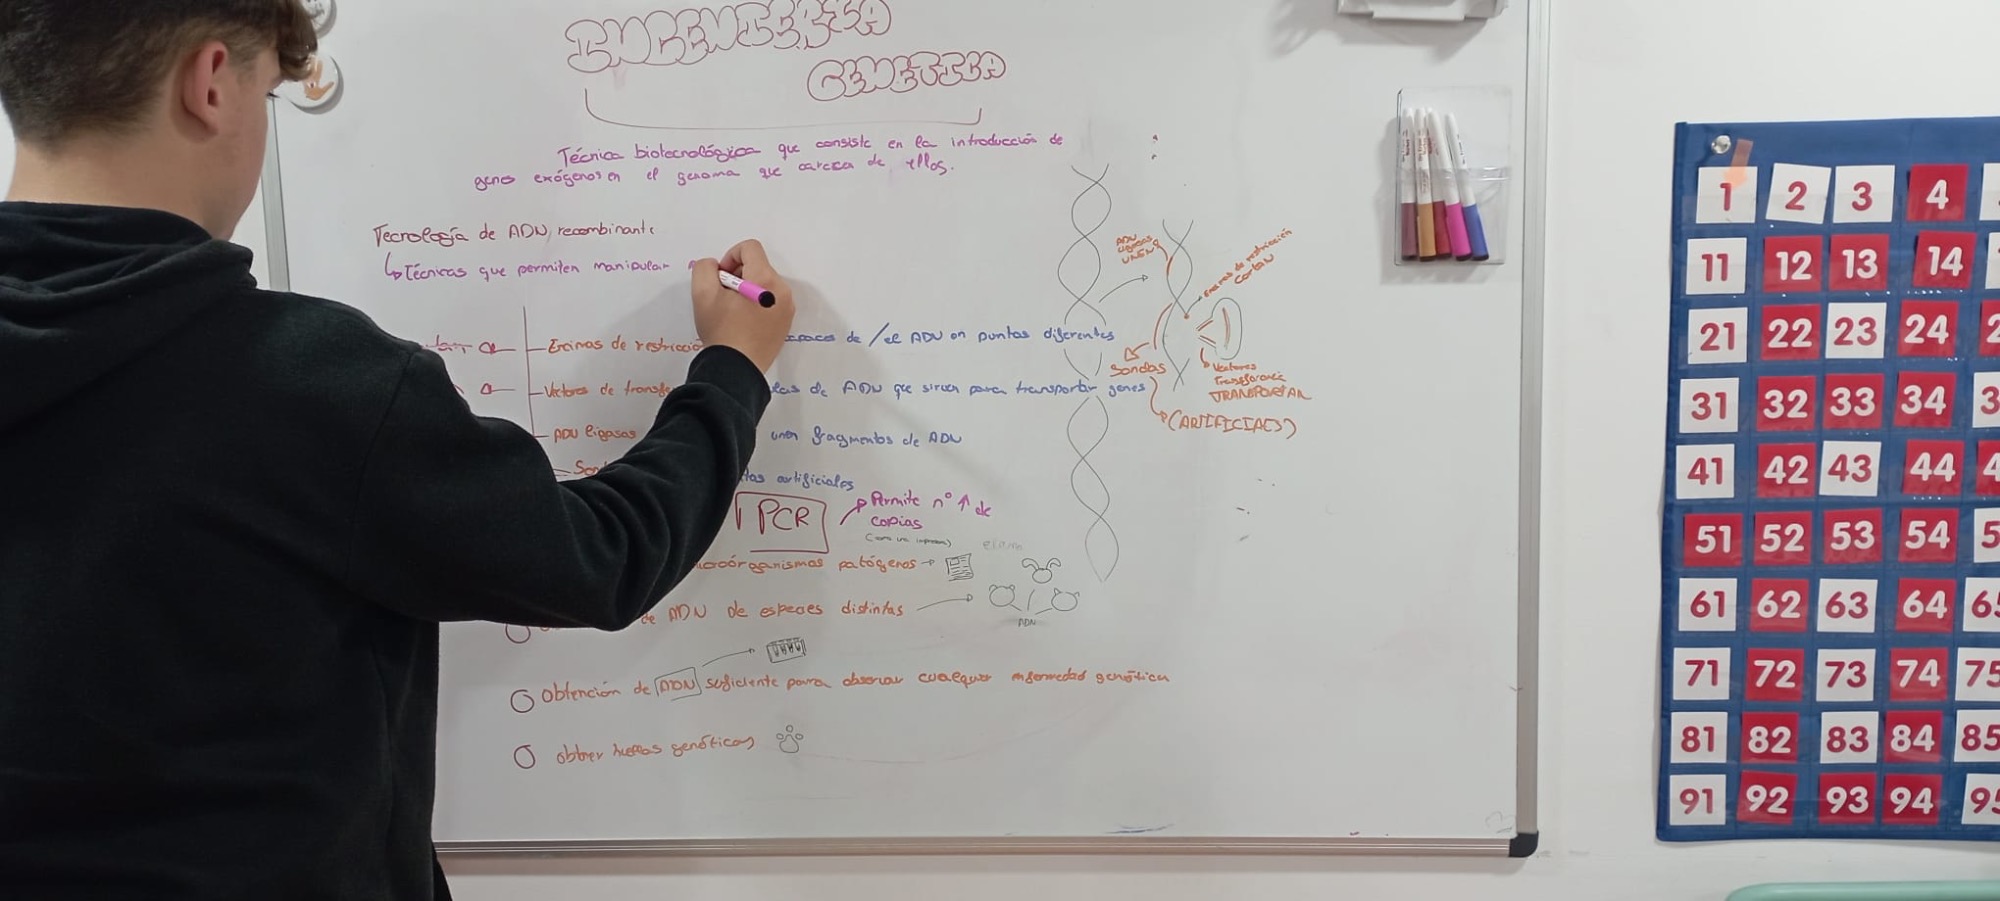 INGENIERIA
GENETICA
Técnica biotecnológica que consiste en la introducción de
genes exógenos en el genoma que carecía de ellos.
Tecnología de ADN recombinante
Técnicas que permiten manipular
Enzimas de restricció
de /el ADN en puntos diferentes
Vectores de transfe
de ADN que sirven para transportar genes
ADN ligasas
unen fragmentos de ADN
Son
artificiales
PCR
Permite nº ↑ de
copias
microórganismos patógenos →
de ADN de especies distintas
ADN
Obtención de ADN suficiente para observar cualquier enfermedad genética
obtener huellas genéticas
ADN
ligasas
UNEN
Enzimas de restricción
CORTAN
Sondas
(ARTIFICIALES)
Vectores
Transferencia
TRANSPORTAR
1 2 3 4
11 12 13 14
21 22 23 24 2
31 32 33 34 3
41 42 43 44 4
51 52 53 54 5
61 62 63 64 65
71 72 73 74 75
81 82 83 84 85
91 92 93 94 95